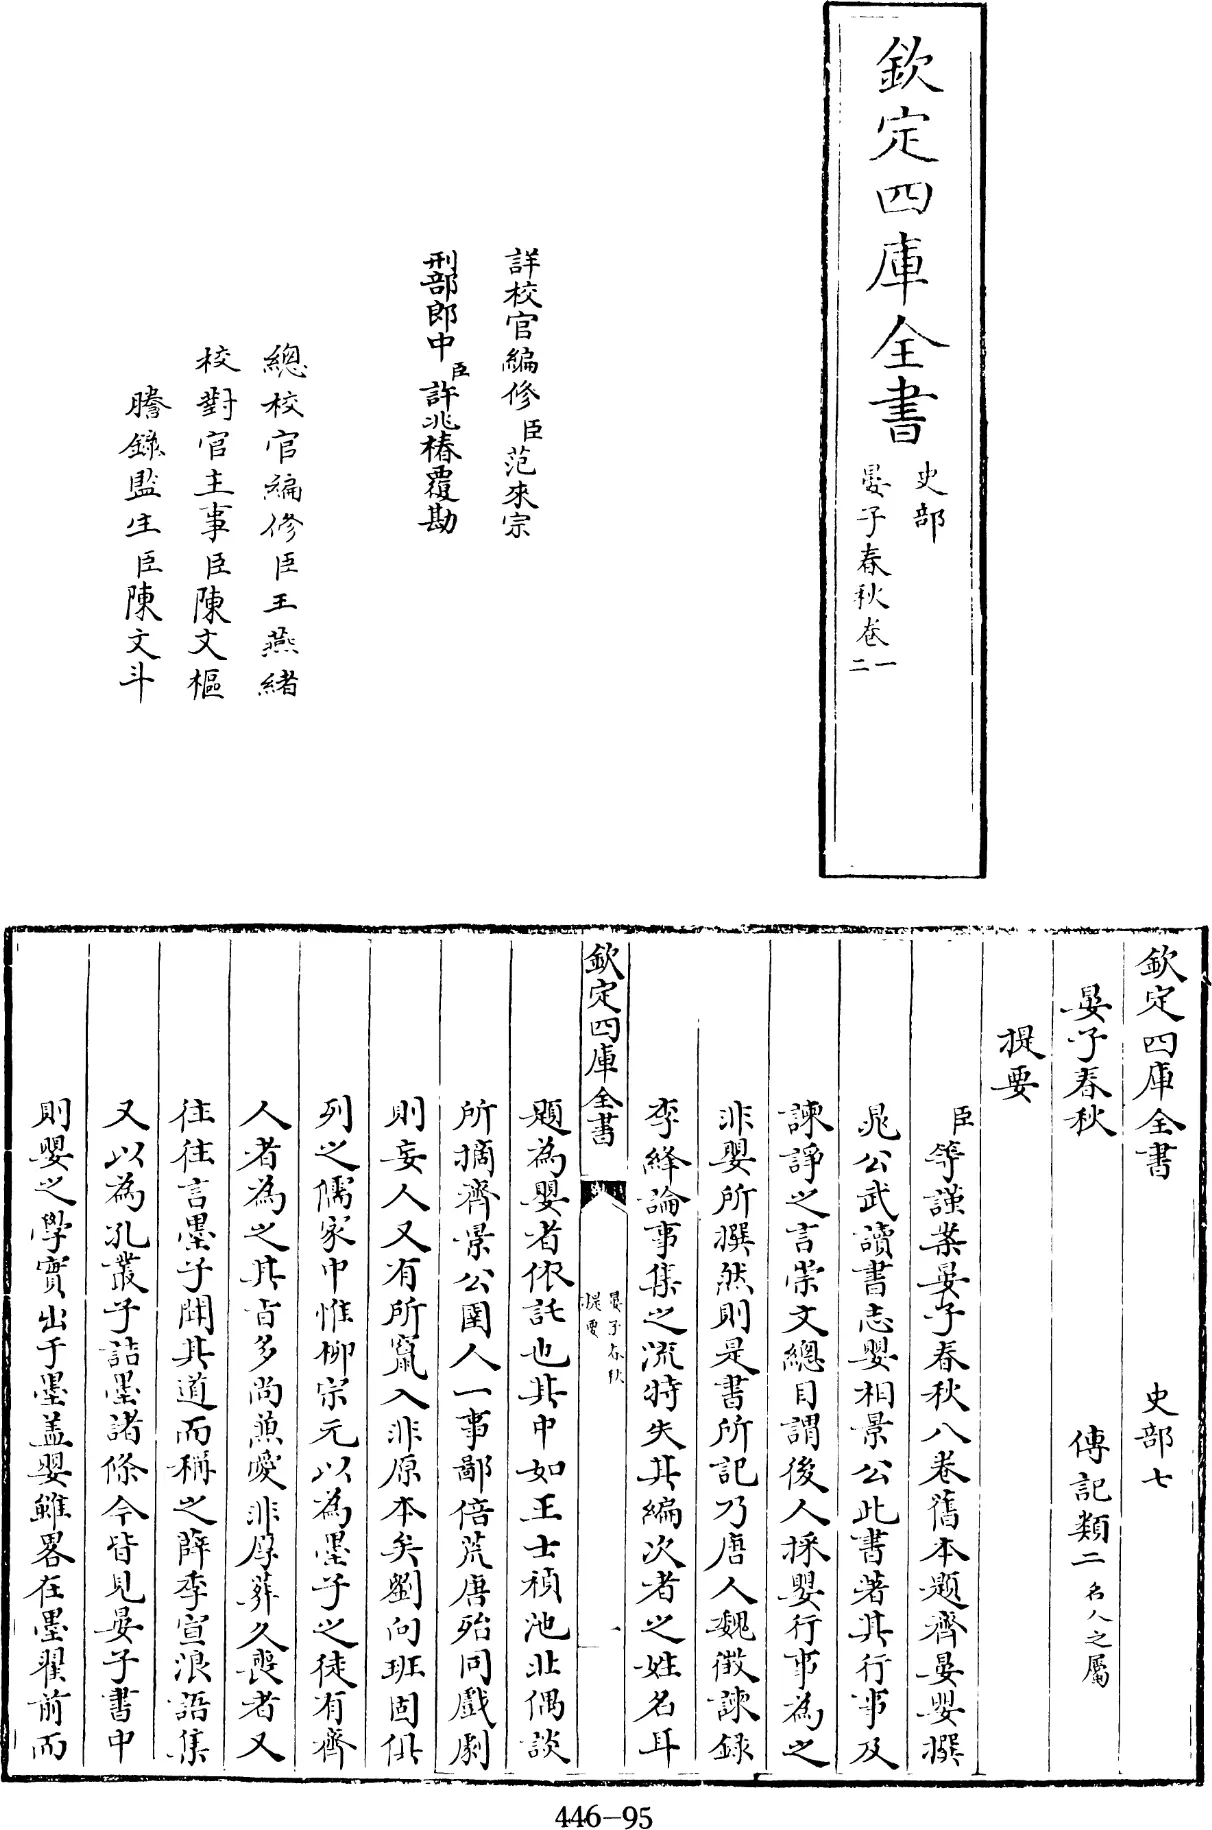 欽定四庫全書
史部
晏子春秋卷一
二
詳校官編修臣范來宗
刑部郎中臣許兆椿覆勘
總校官編修臣王燕緒
校對官主事臣陳文樞
謄錄監生臣陳文斗
欽定四庫全書 史部七
晏子春秋 傳記類二名人之屬
提要
臣等謹案晏子春秋八卷舊本題齊晏嬰撰
晁公武讀書志嬰相景公此書著其行事及
諫諍之言崇文總目謂後人採嬰行事為之
非嬰所撰然則是書所記乃唐人魏徵諫錄
李絳論事集之流特失其編次者之姓名耳
欽定四庫全書
晏子春秋
提要
一
題為嬰者依託也其中如王士禎池北偶談
所摘齊景公圉人一事鄙倍荒唐殆同戲劇
則妄人又有所竄入非原本矣劉向班固俱
列之儒家中惟柳宗元以為墨子之徒有齊
人者為之其旨多尚兼愛非厚葬久喪者又
往往言墨子聞其道而稱之薛季宣浪語集
又以為孔叢子詰墨諸條今皆見晏子書中
則嬰之學實出于墨盖嬰雖畧在墨翟前而
446-95